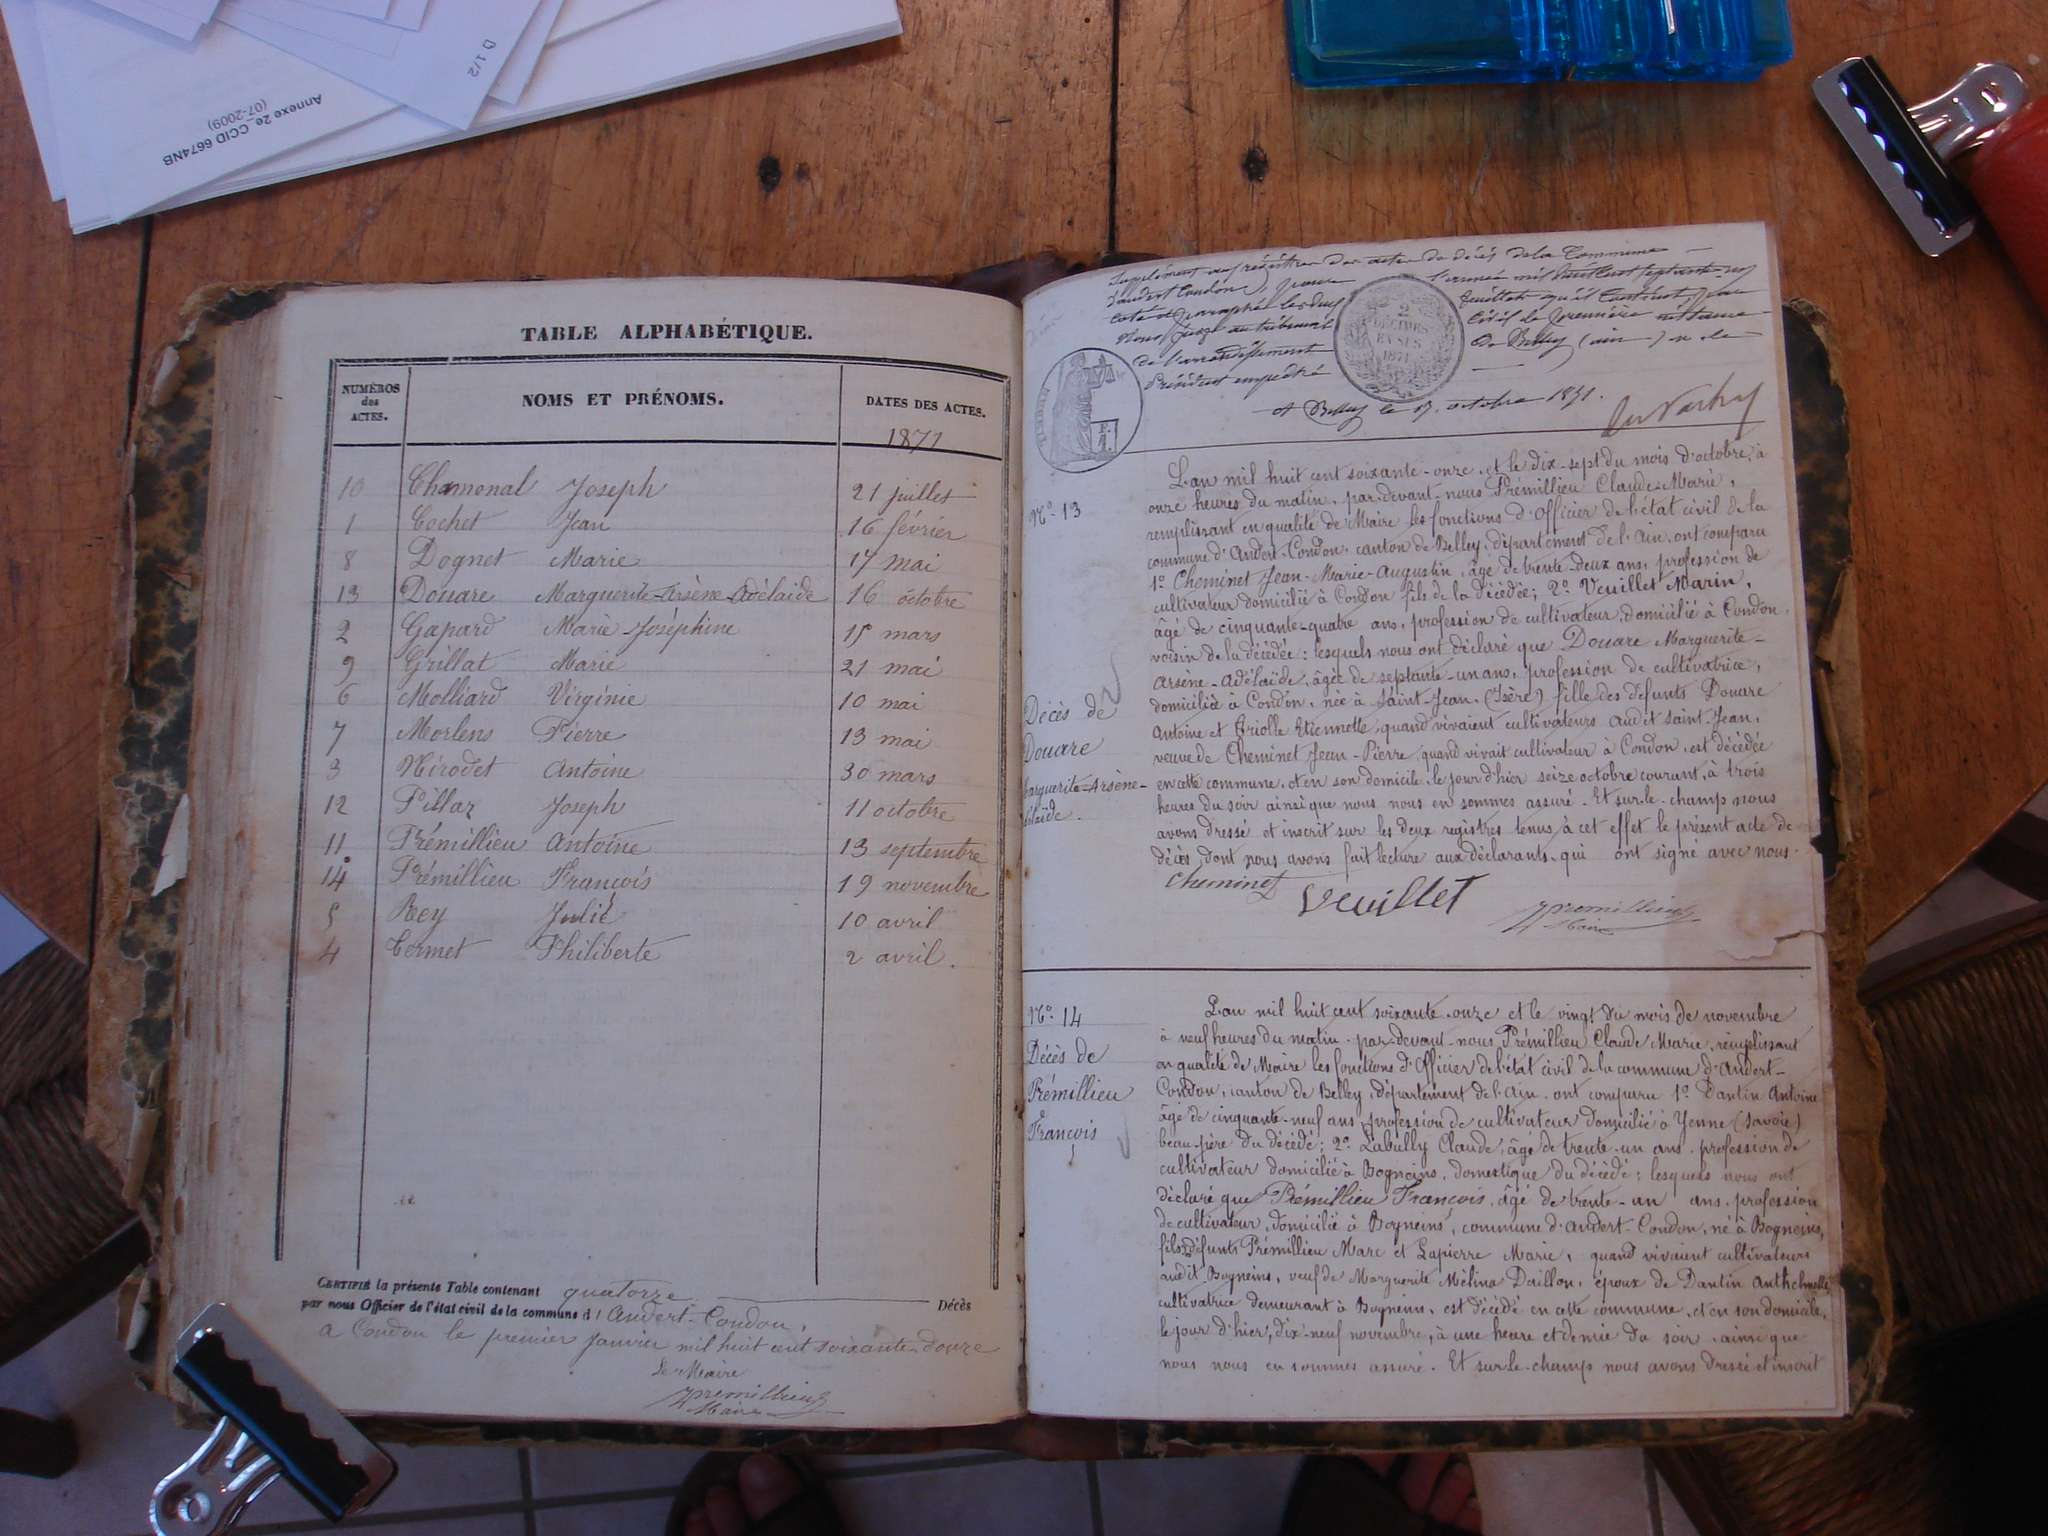 D 1/2
Annexe 2e_CCID 6674NB
(07-2009)
TABLE ALPHABÉTIQUE.
NUMÉROS des ACTES. NOMS ET PRÉNOMS. DATES DES ACTES.
1871
10 Chamonal Joseph 21 juillet
1 Cochet Jean 16 février
8 Dognet Marie 17 mai
13 Douare Marguerite-Arsène-Adélaïde 16 octobre
2 Gapard Marie-Joséphine 15 mars
9 Grillat Marie 21 mai
6 Molliard Virginie 10 mai
7 Morlens Pierre 13 mai
3 Nirodet Antoine 30 mars
12 Pillaz Joseph 11 octobre
11 Prémillieu Antoine 13 septembre
14 Prémillieu François 19 novembre
5 Rey Julie 10 avril
4 Termet Philiberte 2 avril.
CERTIFIÉ la présente Table contenant quatorze Décès
par nous Officier de l'état civil de la commune d' Andert-Condon,
a Condon le premier janvier mil huit cent soixante-douze
Le Maire
Premillieu
Maire
Supplément au régistre des actes de décès de la Commune
d'andert Condon, pour l'année mil huit cent septante un
coté et paraphé les deux feuillets qu'il contient par
Nous juge au tribunal civil de première instance
de l'arrondissement de Belley (ain) n le
Président empêché
A Belley le 17 octobre 1871.
TIMBRE
2 DÉCIMES EN SUS 1871
N° 13
Décès de
Douare
Marguerite-Arsène-
Adélaïde.
L'an mil huit cent soixante-onze, et le dix-sept du mois d'octobre, à
onze heures du matin, par-devant-nous Prémillieu Claude-Marie,
remplissant en qualité de Maire les fonctions d'Officier de l'état civil de la
commune d'Andert-Condon, canton de Belley, département de l'Ain, ont comparu
1° Cheminet Jean-Marie-Augustin, âgé de trente-deux ans, profession de
cultivateur domicilié à Condon fils de la décédée; 2° Veuillet Marin,
âgé de cinquante-quatre ans, profession de cultivateur, domicilié à Condon,
voisin de la décédée: lesquels nous ont déclaré que Douare Marguerite-
Arsène-Adélaïde, âgée de septante-un ans, profession de cultivatrice,
domiciliée à Condon, née à Saint-Jean, (Isère) fille des défunts Douare
Antoine et Triolle Etiennette, quand vivaient cultivateurs audit Saint-Jean,
veuve de Cheminet Jean-Pierre, quand vivait cultivateur à Condon, est décédée
en cette commune, et en son domicile, le jour d'hier seize octobre courant, à trois
heures du soir ainsi que nous nous en sommes assuré. Et sur-le-champ nous
avons dressé et inscrit sur les deux registres tenus à cet effet le présent acte de
décès, dont nous avons fait lecture aux déclarants, qui ont signé avec nous.
Cheminet Veuillet Premillieu
Maire
N° 14
Décès de
Prémillieu
François
L'an mil huit cent soixante-onze et le vingt du mois de novembre
à neuf heures du matin, par-devant-nous Prémillieu Claude Marie, remplissant
en qualité de Maire les fonctions d'Officier de l'état civil de la commune d'Andert-
Condon, canton de Belley, département de l'Ain, ont comparu 1° Dantin Antoine
âgé de cinquante-neuf ans profession de cultivateur domicilié à Yenne (Savoie)
beau-père du décédé; 2° Labully Claude, âgé de trente-un ans, profession de
cultivateur domicilié à Bogneins, domestique du décédé: lesquels nous ont
déclaré que Prémillieu François, âgé de trente-un ans, profession
de cultivateur, domicilié à Bogneins, commune d'Andert-Condon, né à Bogneins,
fils défunts Prémillieu Marc et Lapierre Marie, quand vivaient cultivateurs
audit Bogneins, veuf de Marguerite Mélina Daillon, époux de Dantin Anthelmette
cultivatrice demeurant à Bogneins, est décédé en cette commune, et en son domicile,
le jour d'hier, dix-neuf novembre, à une heure et demie du soir, ainsi que
nous nous en sommes assuré. Et sur-le-champ nous avons dressé et inscrit